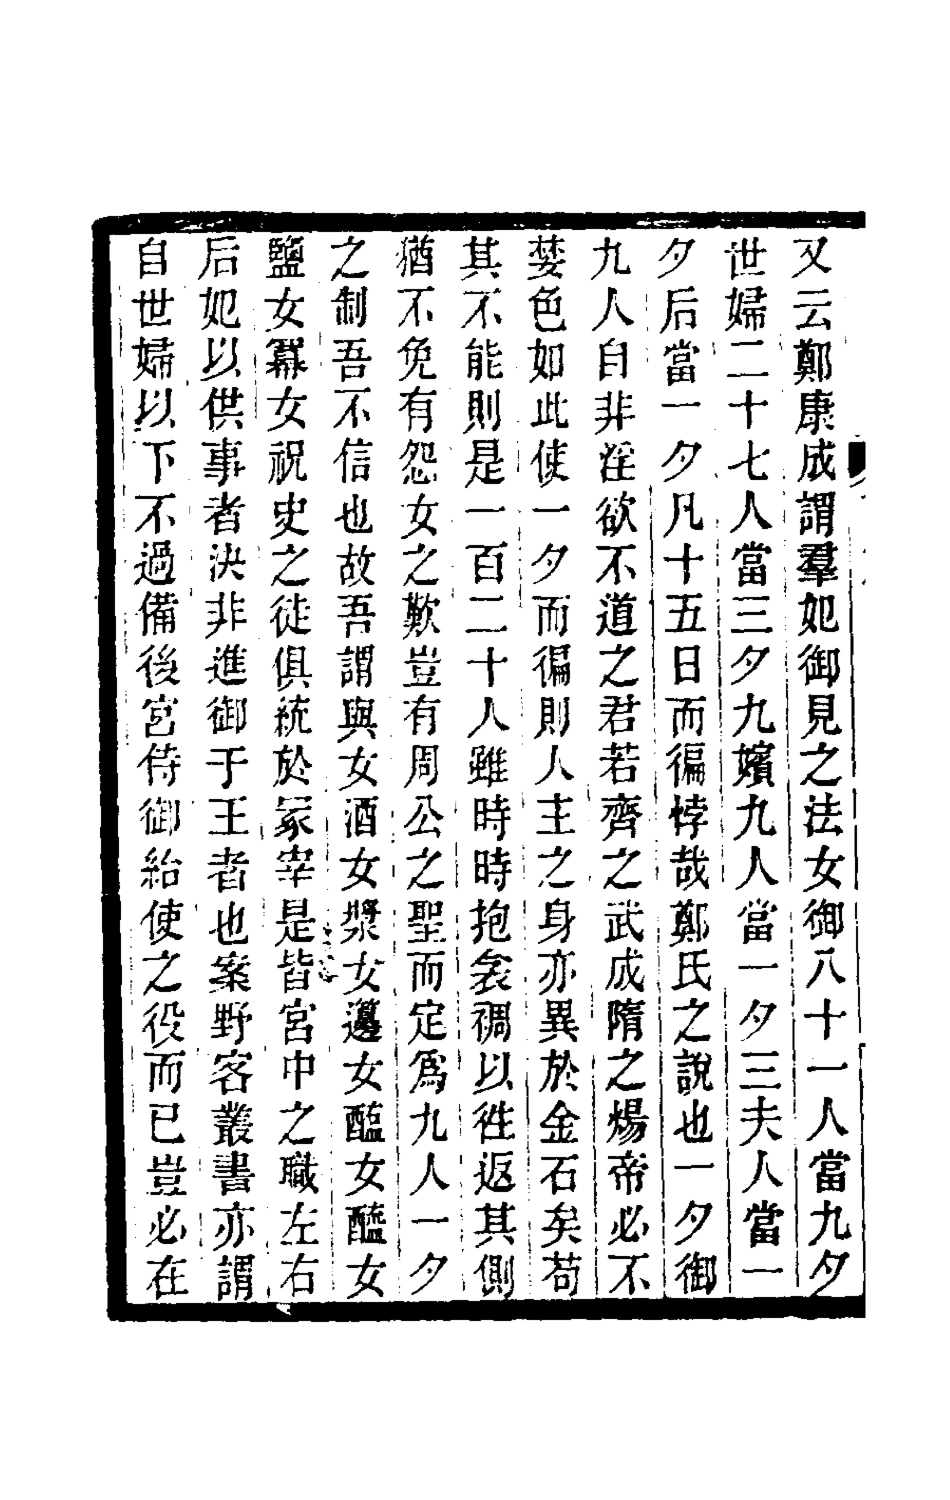 又云鄭康成謂羣妃御見之法女御八十一人當九夕
世婦二十七人當三夕九嬪九人當一夕三夫人當一
夕后當一夕凡十五日而徧悖哉鄭氏之說也一夕御
九人自非淫欲不道之君若齊之武成隋之煬帝必不
婪色如此使一夕而徧則人主之身亦異於金石矣苟
其不能則是一百二十人雖時時抱衾裯以徃返其側
猶不免有怨女之歎豈有周公之聖而定爲九人一夕
之制吾不信也故吾謂與女酒女漿女籩女醢女醯女
鹽女冪女祝史之徒俱統於冢宰是皆宮中之職左右
后妃以供事者決非進御于王者也案野客叢書亦謂
自世婦以下不過備後宮侍御給使之役而已豈必在